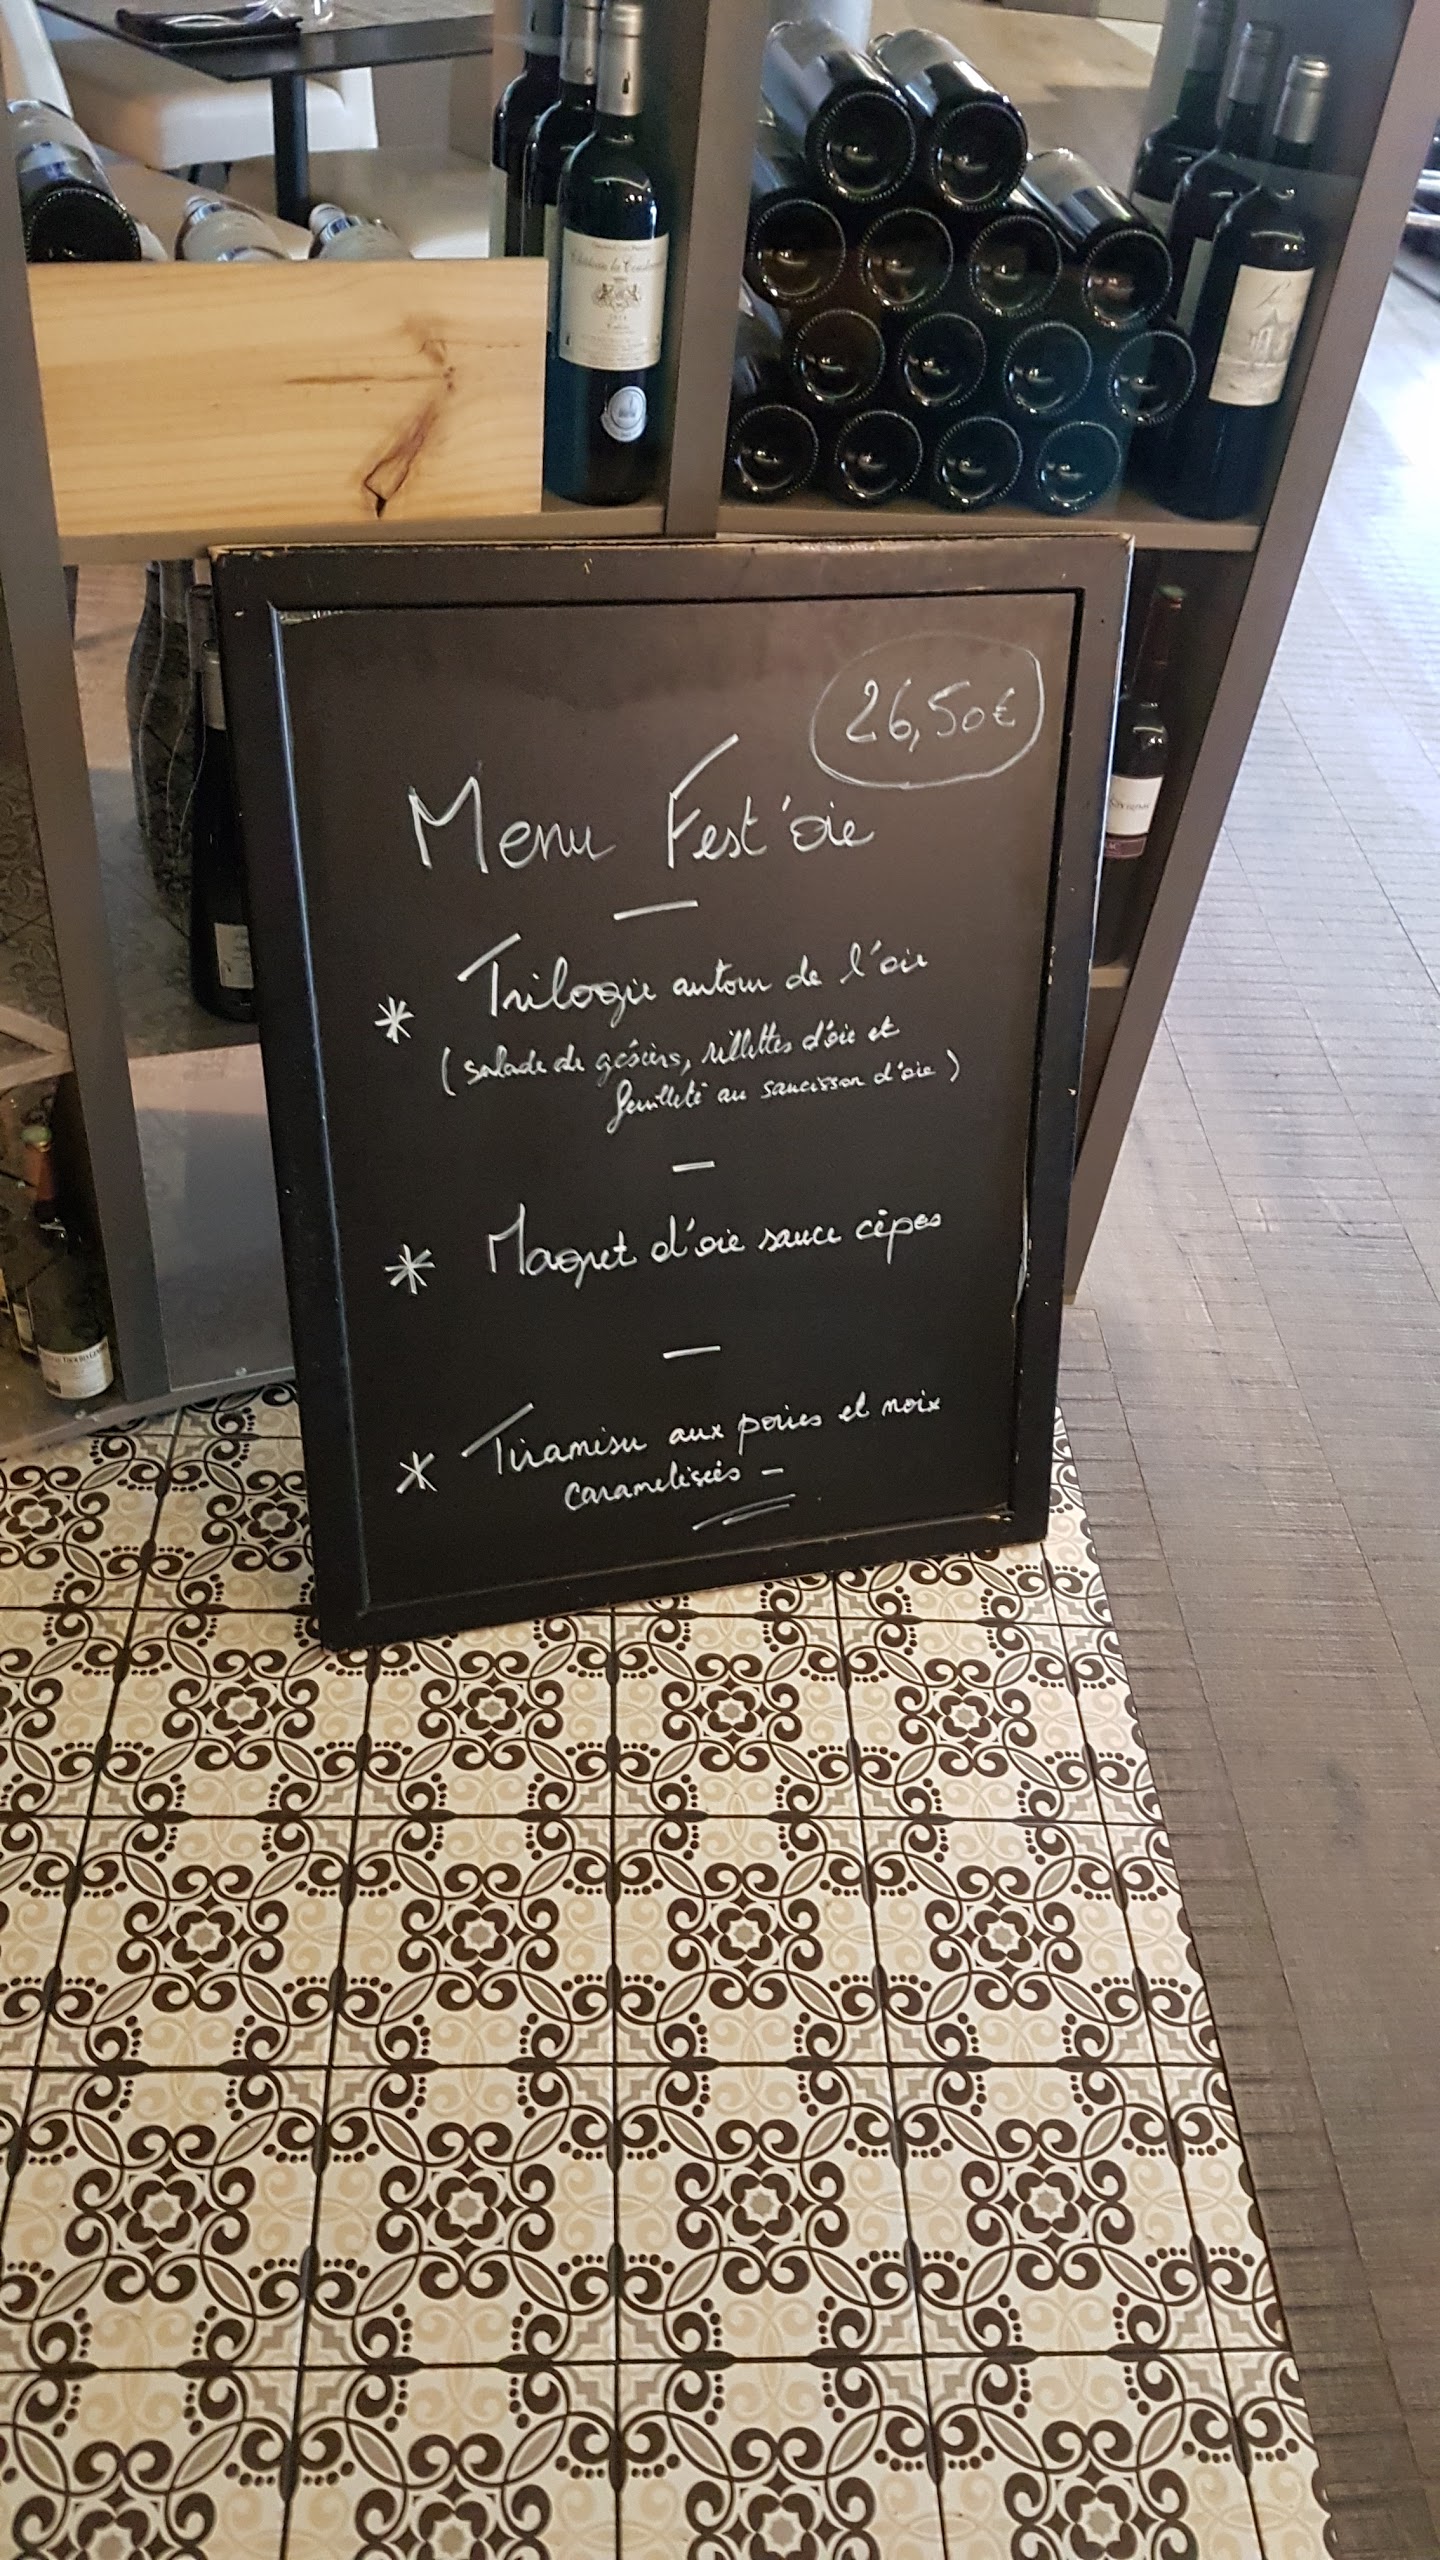 26,50€
Menu Fest'oie
—
* Trilogie autour de l'oie
(salade de gésiers, rillettes d'oie et
feuilleté au saucisson d'oie)
—
* Magret d'oie sauce cèpes
—
* Tiramisu aux poires et noix
caramelisées -